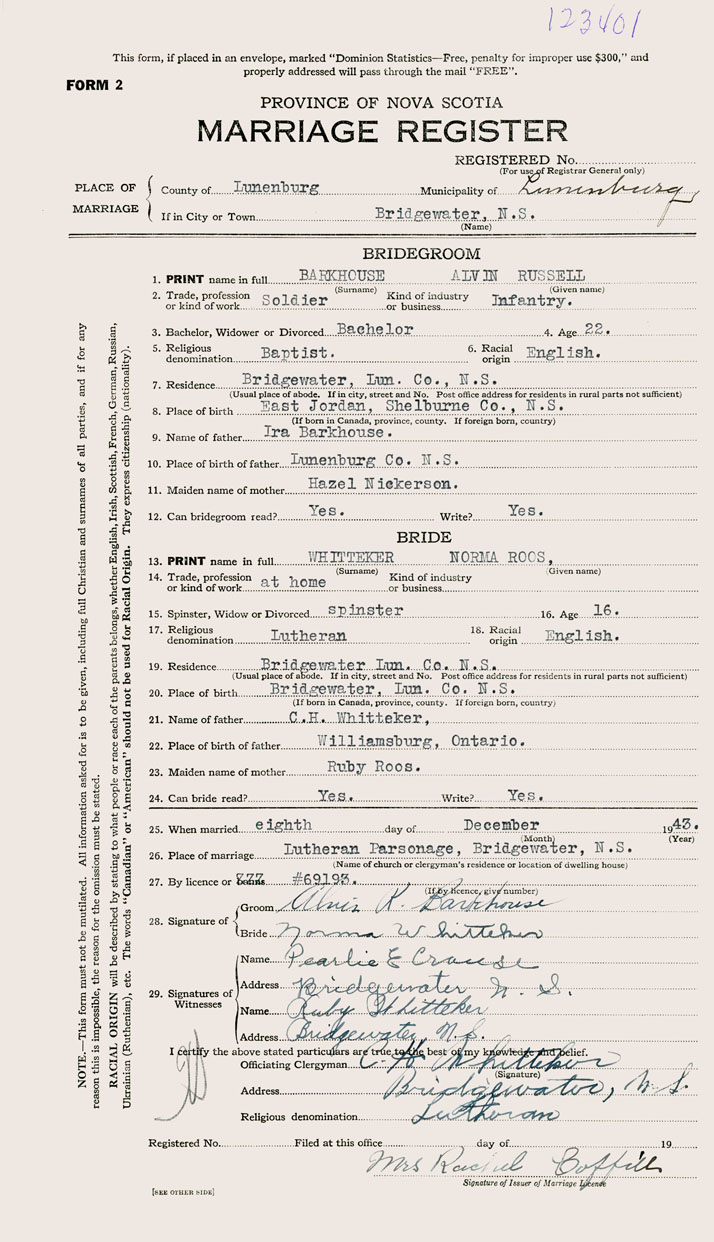 123401
This form, if placed in an envelope, marked "Dominion Statistics—Free, penalty for improper use $300," and
properly addressed will pass through the mail "FREE".
FORM 2
PROVINCE OF NOVA SCOTIA
MARRIAGE REGISTER
REGISTERED No.
(For use of Registrar General only)
PLACE OF MARRIAGE
County of Lunenburg Municipality of Lunenburg
If in City or Town Bridgewater, N.S.
(Name)
BRIDEGROOM
1. PRINT name in full BARKHOUSE ALVIN RUSSELL
(Surname) (Given name)
2. Trade, profession or kind of work Soldier Kind of industry or business Infantry.
3. Bachelor, Widower or Divorced Bachelor 4. Age 22.
5. Religious denomination Baptist. 6. Racial origin English.
7. Residence Bridgewater, Lun. Co., N.S.
(Usual place of abode. If in city, street and No. Post office address for residents in rural parts not sufficient)
8. Place of birth East Jordan, Shelburne Co., N.S.
(If born in Canada, province, county. If foreign born, country)
9. Name of father Ira Barkhouse.
10. Place of birth of father Lunenburg Co. N.S.
11. Maiden name of mother Hazel Nickerson.
12. Can bridegroom read? Yes. Write? Yes.
BRIDE
13. PRINT name in full WHITTEKER NORMA ROOS,
(Surname) (Given name)
14. Trade, profession or kind of work at home Kind of industry or business
15. Spinster, Widow or Divorced spinster 16. Age 16.
17. Religious denomination Lutheran 18. Racial origin English.
19. Residence Bridgewater Lun. Co. N.S.
(Usual place of abode. If in city, street and No. Post office address for residents in rural parts not sufficient)
20. Place of birth Bridgewater, Lun. Co. N.S.
(If born in Canada, province, county. If foreign born, country)
21. Name of father C.H. Whitteker,
22. Place of birth of father Williamsburg, Ontario.
23. Maiden name of mother Ruby Roos.
24. Can bride read? Yes. Write? Yes.
25. When married eighth day of December 1943.
(Month) (Year)
26. Place of marriage Lutheran Parsonage, Bridgewater, N.S.
(Name of church or clergyman's residence or location of dwelling house)
27. By licence or #69193.
(If by licence, give number)
28. Signature of
Groom Alvin R. Barkhouse
Bride Norma Whitteker
29. Signatures of Witnesses
Name Pearlie E Crouse
Address Bridgewater N. S.
Name Ruby Whitteker
Address Bridgewater N.S.
I certify the above stated particulars are true to the best of my knowledge and belief.
Officiating Clergyman C. H. Whitteker
(Signature)
Address Bridgewater, N. S.
Religious denomination Lutheran
Registered No. Filed at this office day of 19
Mrs Rachel Boffill
Signature of Issuer of Marriage Licence
[SEE OTHER SIDE]
NOTE.—This form must not be mutilated. All information asked for is to be given, including full Christian and surnames of all parties, and if for any
reason this is impossible, the reason for the omission must be stated.
RACIAL ORIGIN will be described by stating to what people or race each of the parents belongs, whether English, Irish, Scottish, French, German, Russian,
Ukrainian (Ruthenian), etc. The words "Canadian" or "American" should not be used for Racial Origin. They express citizenship (nationality).